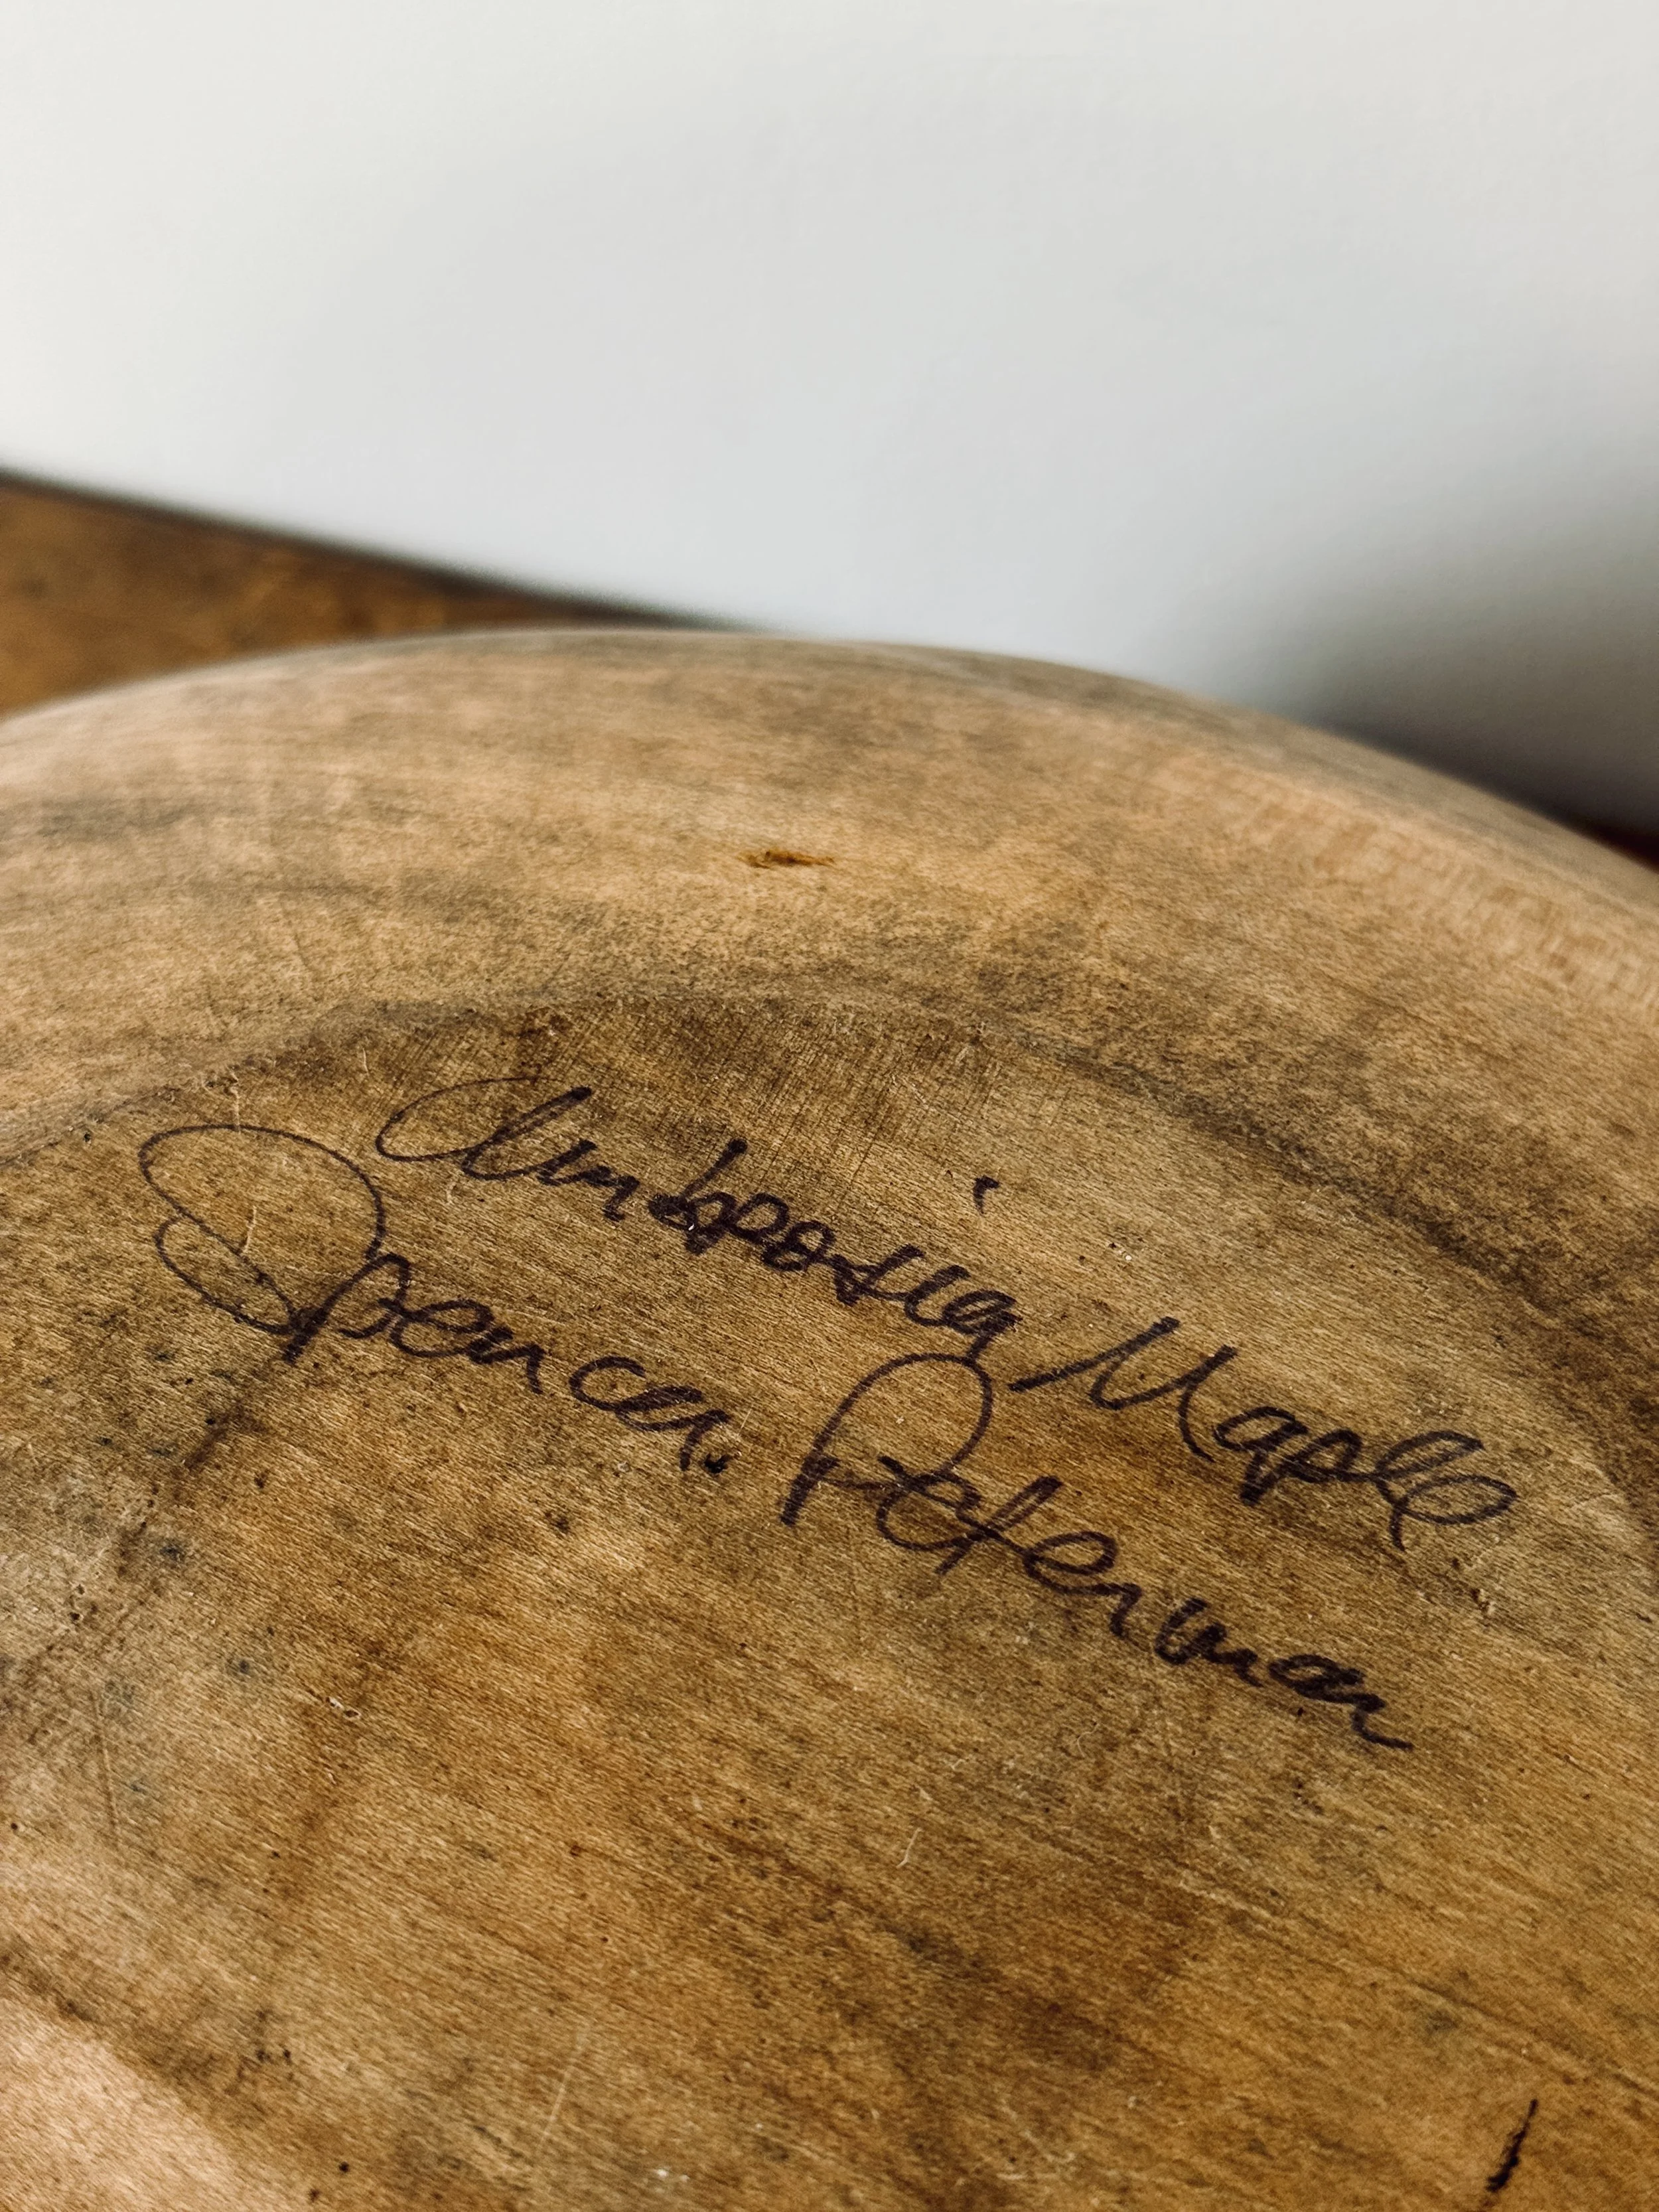 Ambrosia Maple
Spencer Peterman